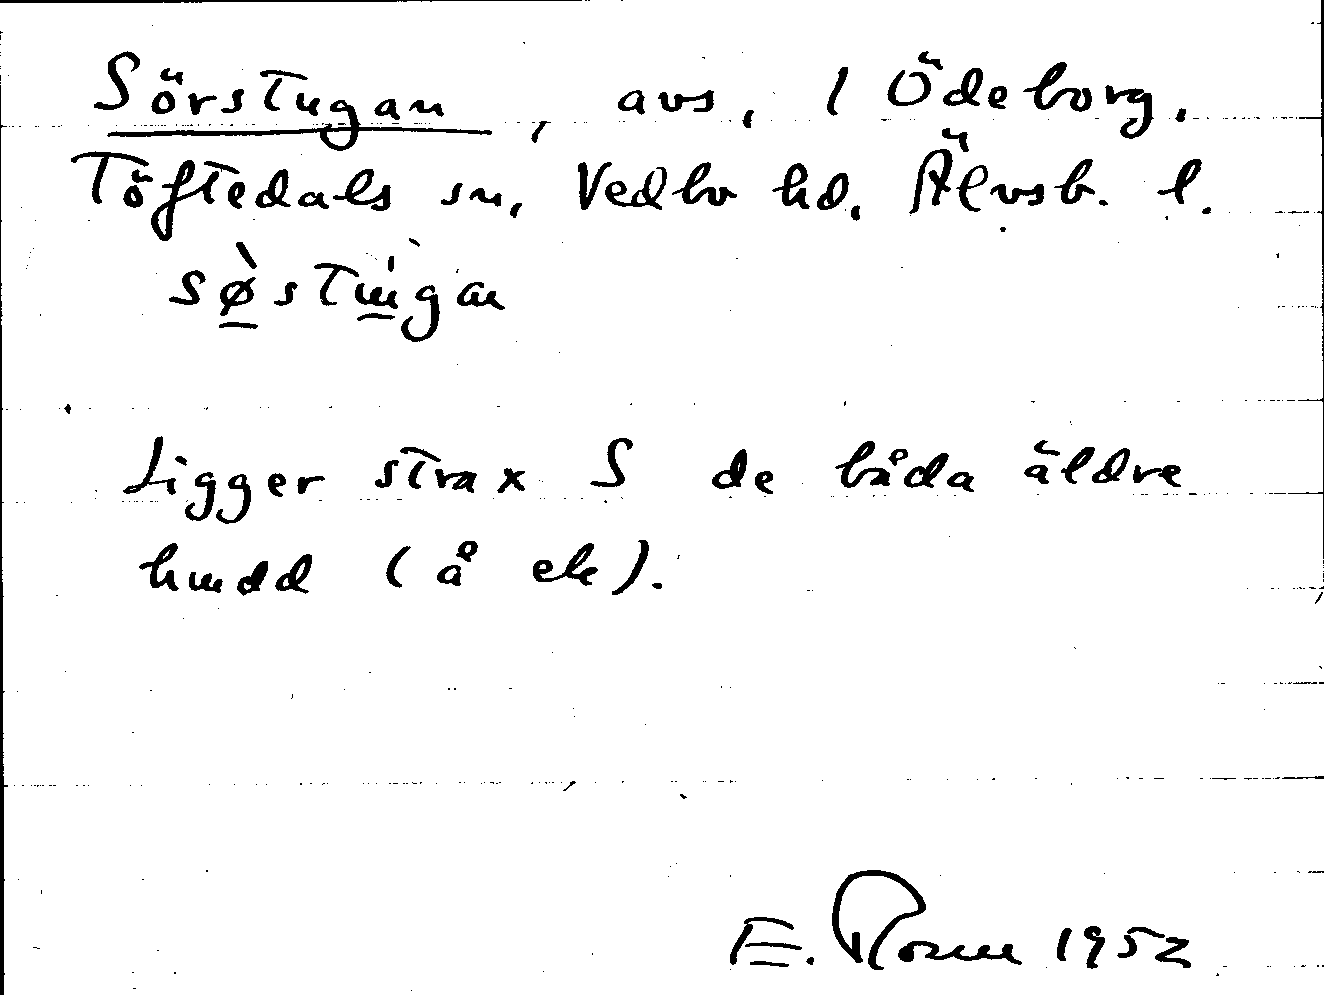 Sörstugan, avs. 1 Ödeborg.
Töftedals sn, Vedbo hd. Älvsb. l.
Ligger strax S de båda äldre
(å ek).
E. 1952